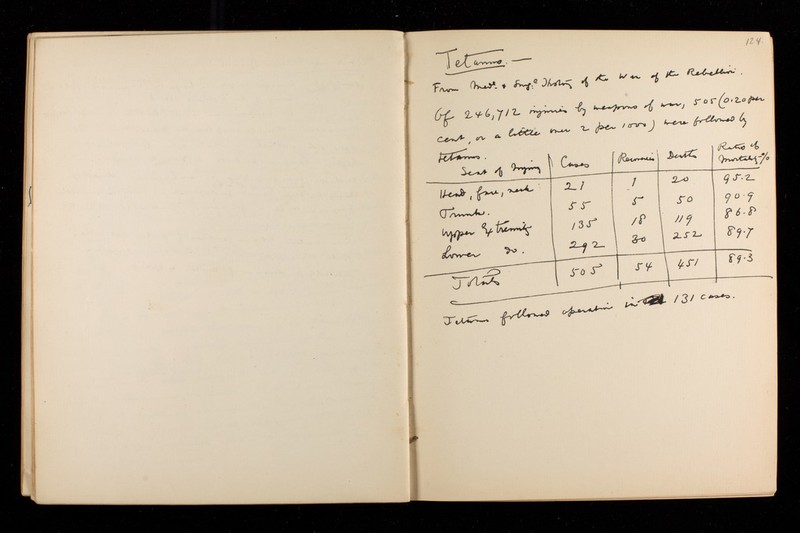 124
Tetanus. —
From Med.l & Surg.l History of the War of the Rebellion.
Of 246,712 injuries by weapons of war, 505 (0.20 per
cent, or a little over 2 per 1000) were followed by
tetanus.
Seat of Injury | Cases | Recoveries | Deaths | Ratio of Mortality %
Head, face, neck | 21 | 1 | 20 | 95.2
Trunk. | 55 | 5 | 50 | 90.9
Upper Extremity | 135 | 18 | 119 | 86.8
Lower do. | 292 | 30 | 252 | 89.7
Totals | 505 | 54 | 451 | 89.3
Tetanus followed operation in 131 cases.